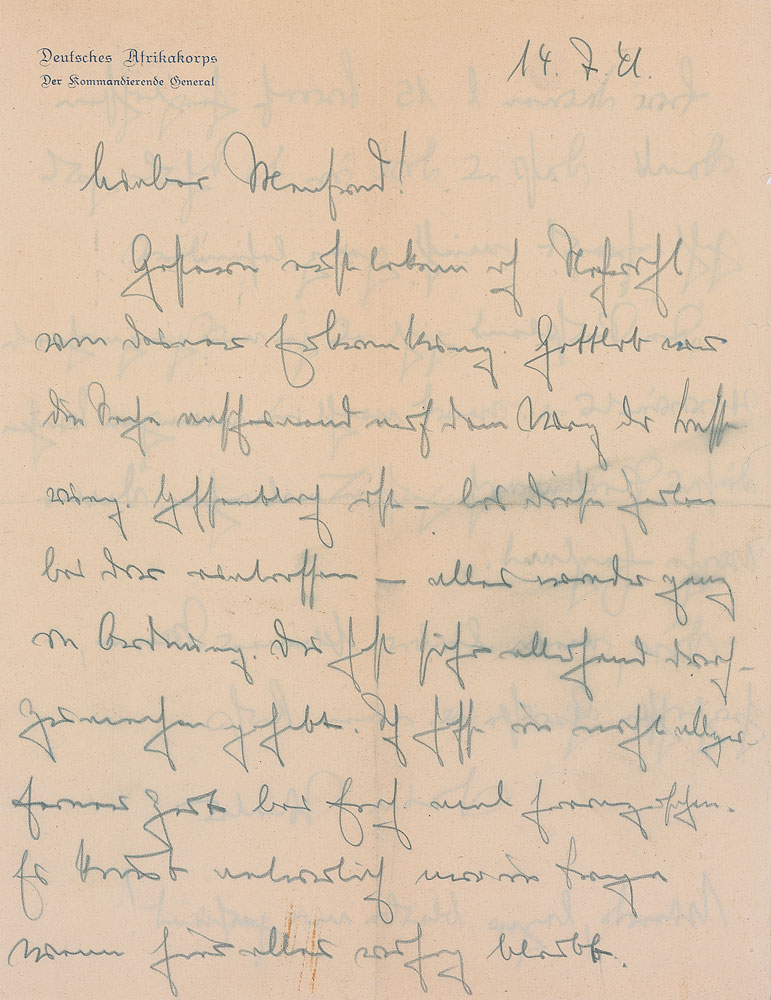 Deutsches Afrikakorps
Der Kommandierende General
14. 7. 41.
Lieber Manfred!
Gestern erst bekam ich Nachricht
von deiner Erkrankung. Gottlob war
die Sache anscheinend auf dem Weg der Besse-
rung. Hoffentlich ist – bis diese Zeilen
bei dir eintreffen – alles wieder ganz
in Ordnung. Du hast sicher allerhand durch-
zumachen gehabt. Ich hoffe in nicht allzu-
ferner Zeit bei Euch mal hereinzusehen.
Es kommt natürlich nur in Frage
wenn hier alles ruhig bleibt.